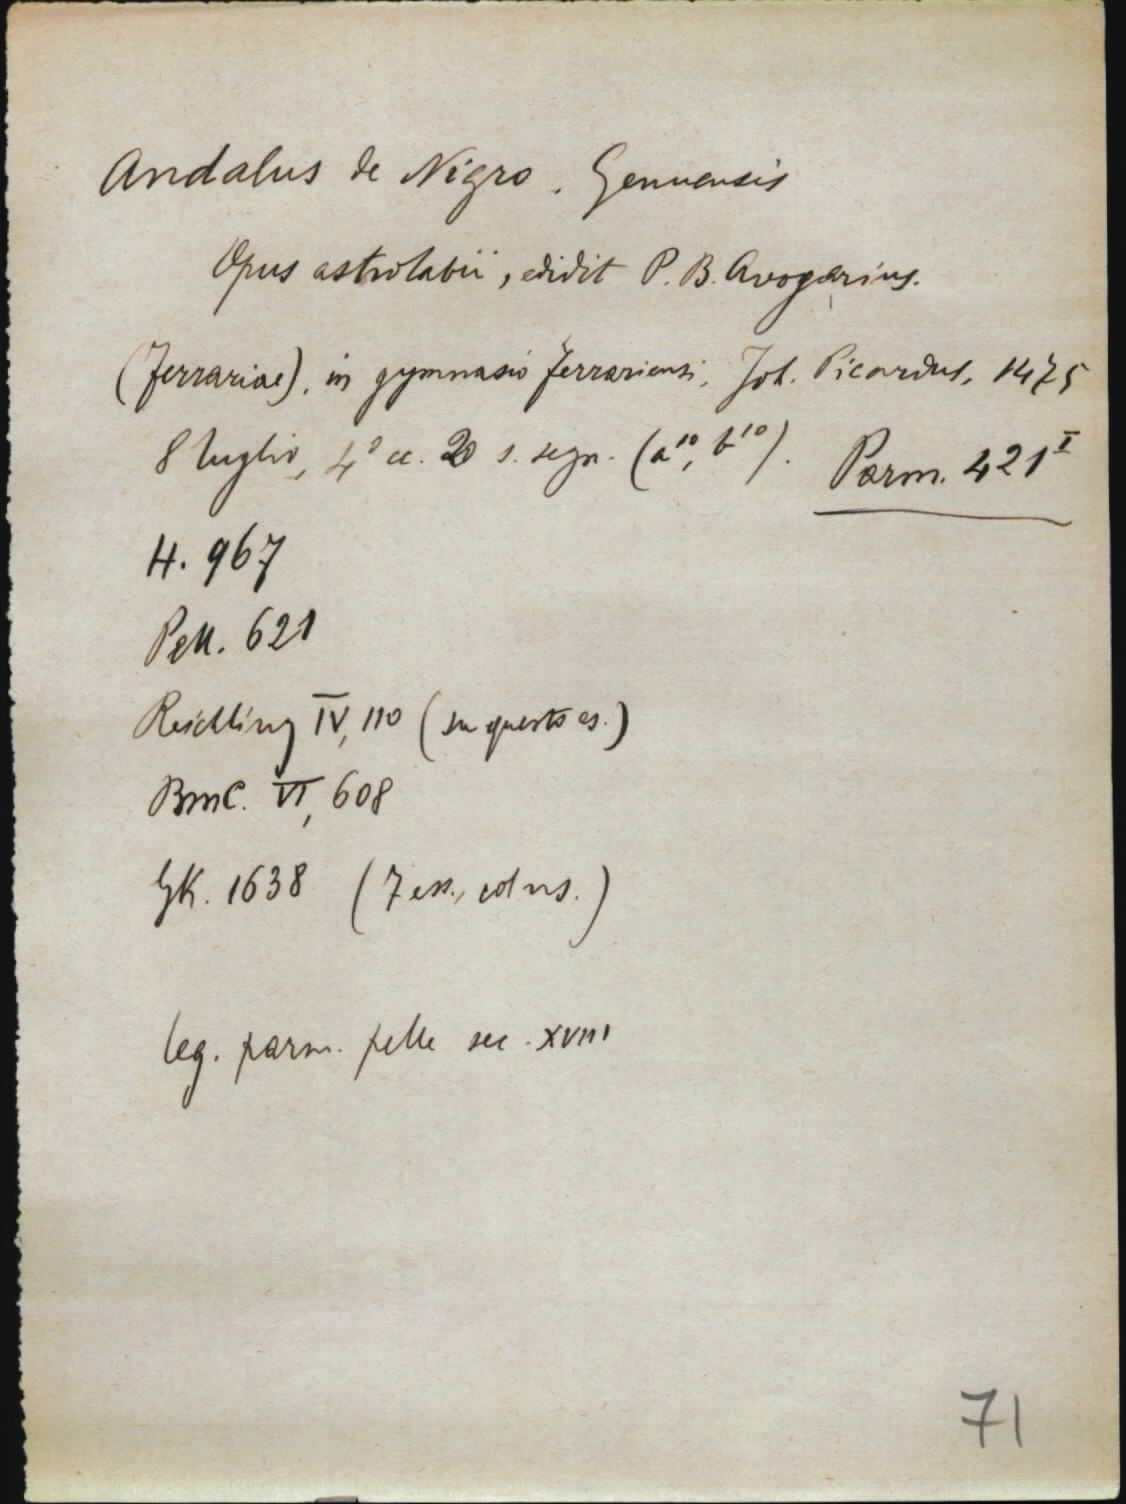 Andalus de Nigro, Genuensis
Opus astrolabii, edidit P. B. Avogarius.
(Ferrariae), in gymnasio ferrariensi, Joh. Picardus, 1475
8 luglio, 4° cc. 20 s. segn. (a¹⁰, b¹⁰). Parm. 421ᴵ
H. 967
Pell. 621
Reichling IV, 110 (su questo es.)
BMC. VI, 608
GK. 1638 (7 ess., col ns.)
leg. parm. pelle sec. XVIII
71